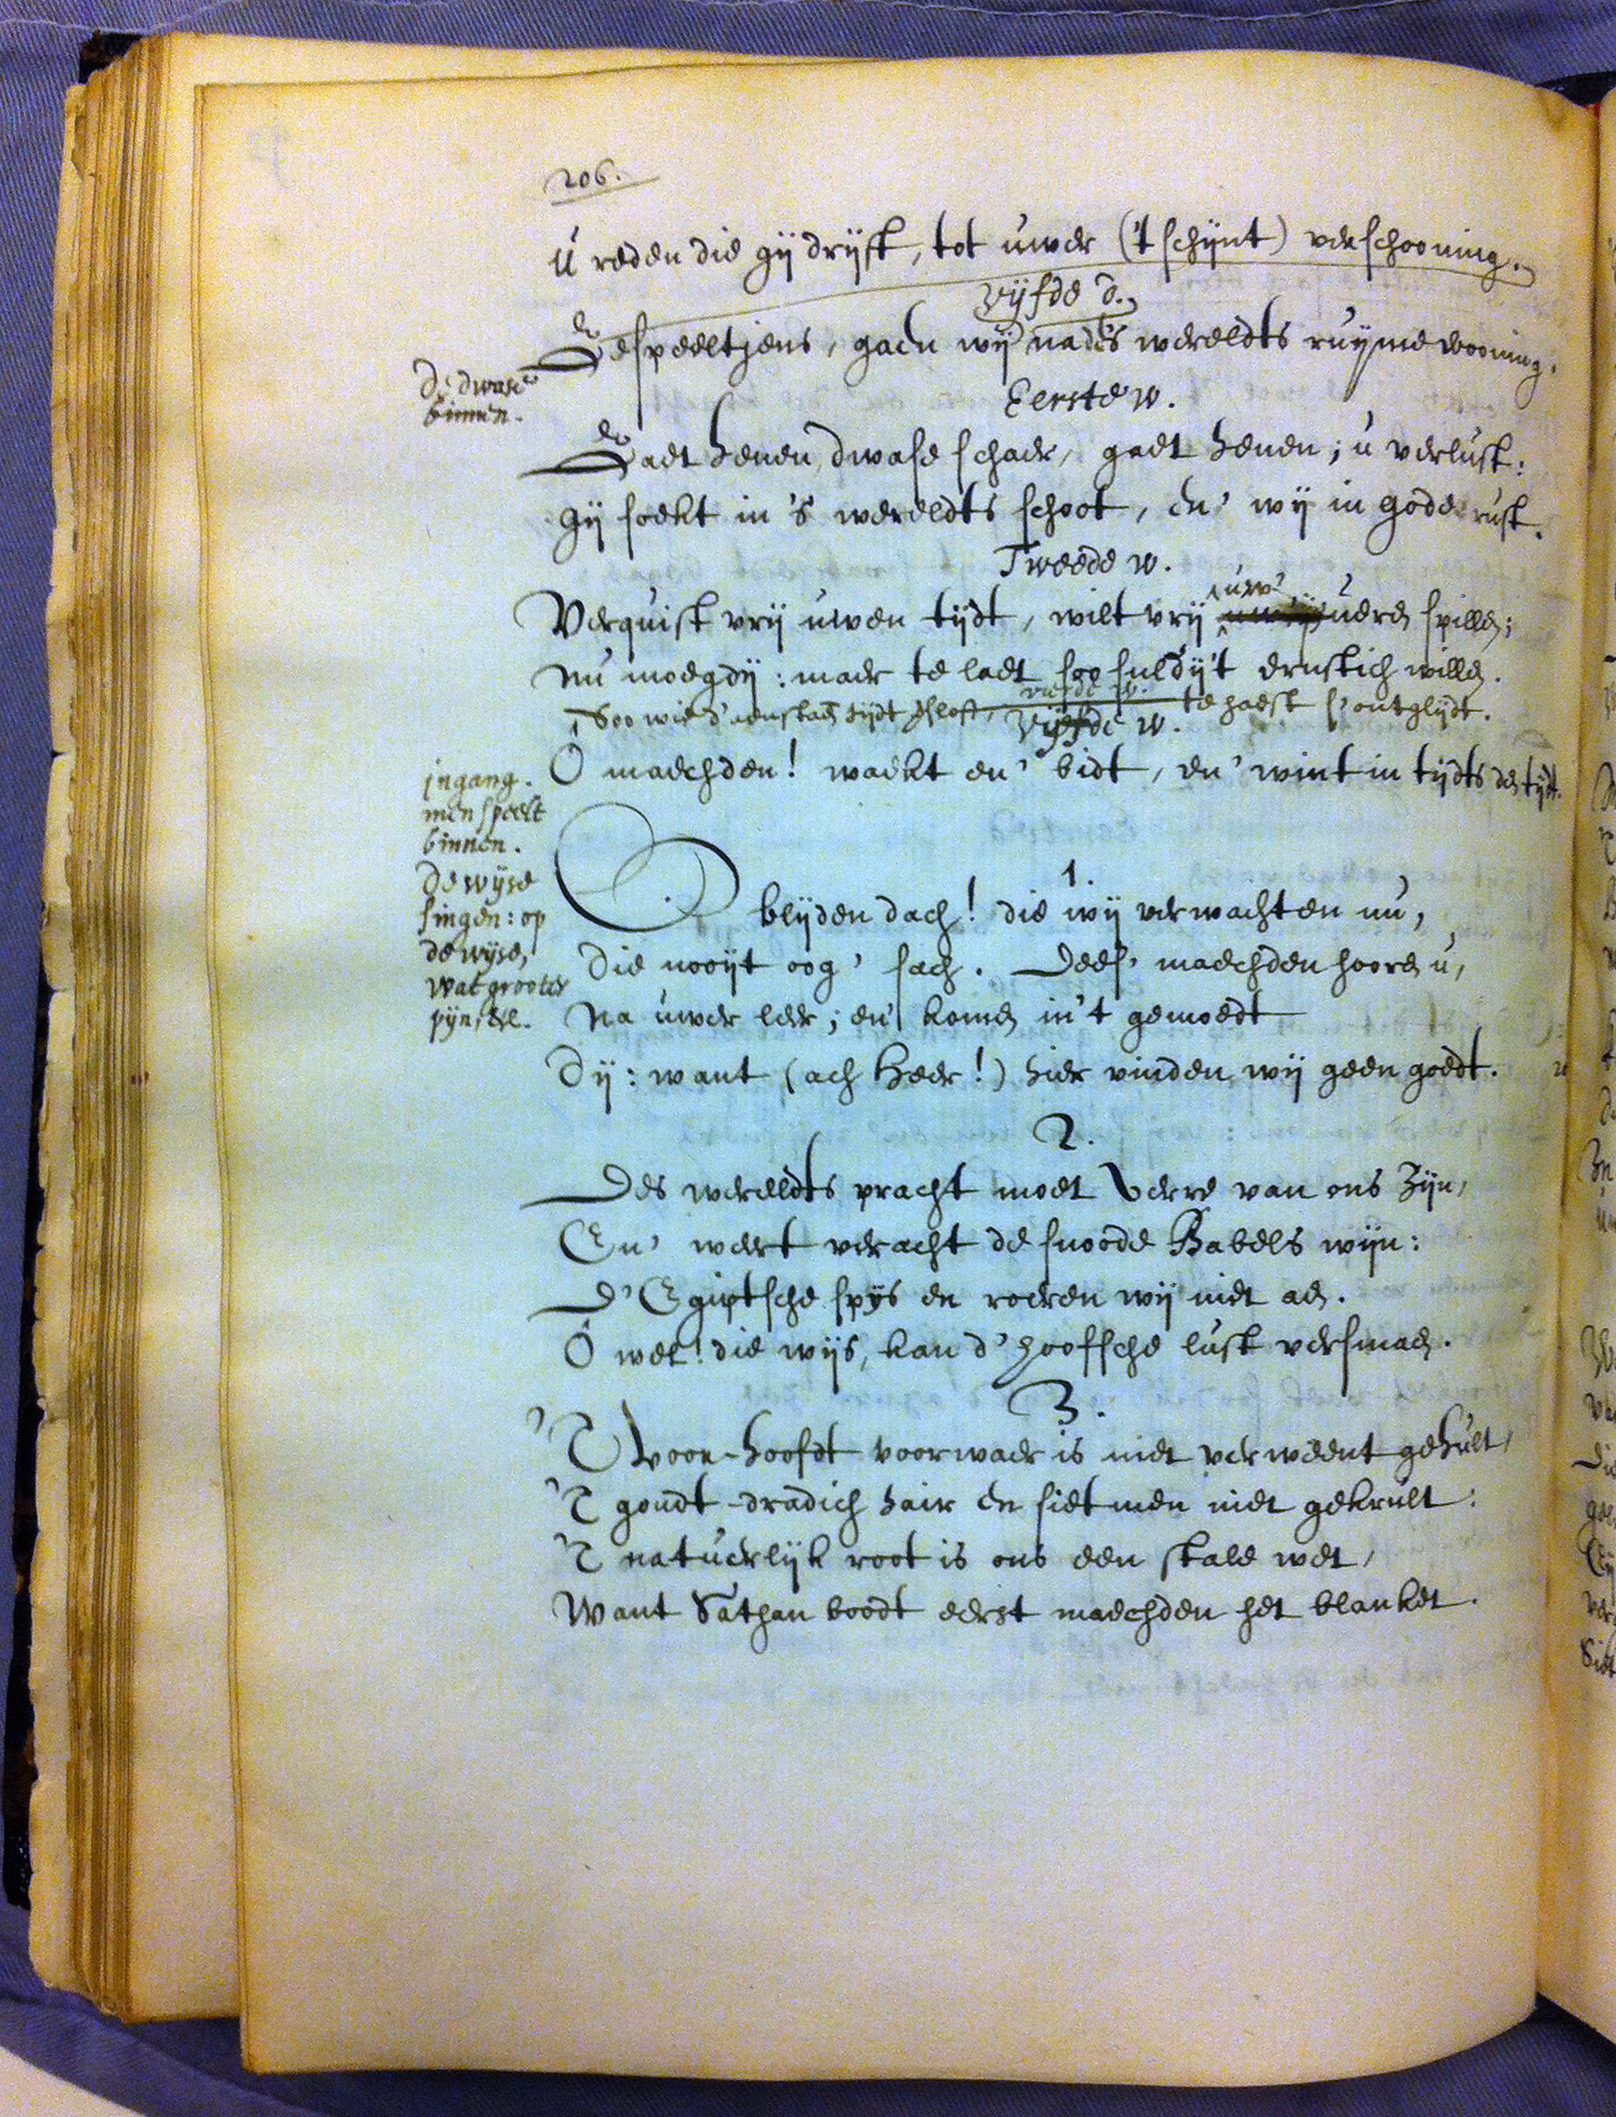 206.
U reden die gij drijft, tot uwer ('t schijnt) verschooning.
Vijfde d.
Gespeeltjens, gaen wij na des wereldts ruijme wooning.
De dwase
binnen.
Eerste w.
Gaet henen dwase schaer, gaet henen; u verlust:
Gij soekt in 's wereldts schoot, en' wij in Gode rust.
Tweede w.
Verquist vrij uwen tijdt, wilt vrij uw' ueren spillen;
Nu moegdij: maer te laet soo suldij't ernstich willen.
vierde w.
Soo wie d'aenstaen tijdt te haest s'ontglijdt.
Vijfde w.
O maechden! waekt en' bidt, en' wint in tijdts den tijdt.
ingang.
men speelt
binnen.
De wijse
singen: op
de wijse,
Wat grooter
pijn etc.
1.
O blijden dach! die wij verwachten nu,
Die nooijt oog' sach. Dees' maechden hooren u,
Na uwer leer; en' komen in't gemoedt
Dij: want (ach Heer!) hier vinden wij geen goedt.
2.
Des wereldts pracht moet verre van ons zijn,
En' weert veracht de snoode Babels wijn:
D'Egiptsche spijs en roeren wij niet aen.
O wel! die wijs, kan d'hoofsche lust versmaen.
3.
'T voor-hoofdt voorwaer is niet verweent gehult,
'T goudt-dradich hair en siet men niet gekrult:
'T natuerlijk root is ons een stale wet,
Want Sathan boodt eerst maechden het blanket.